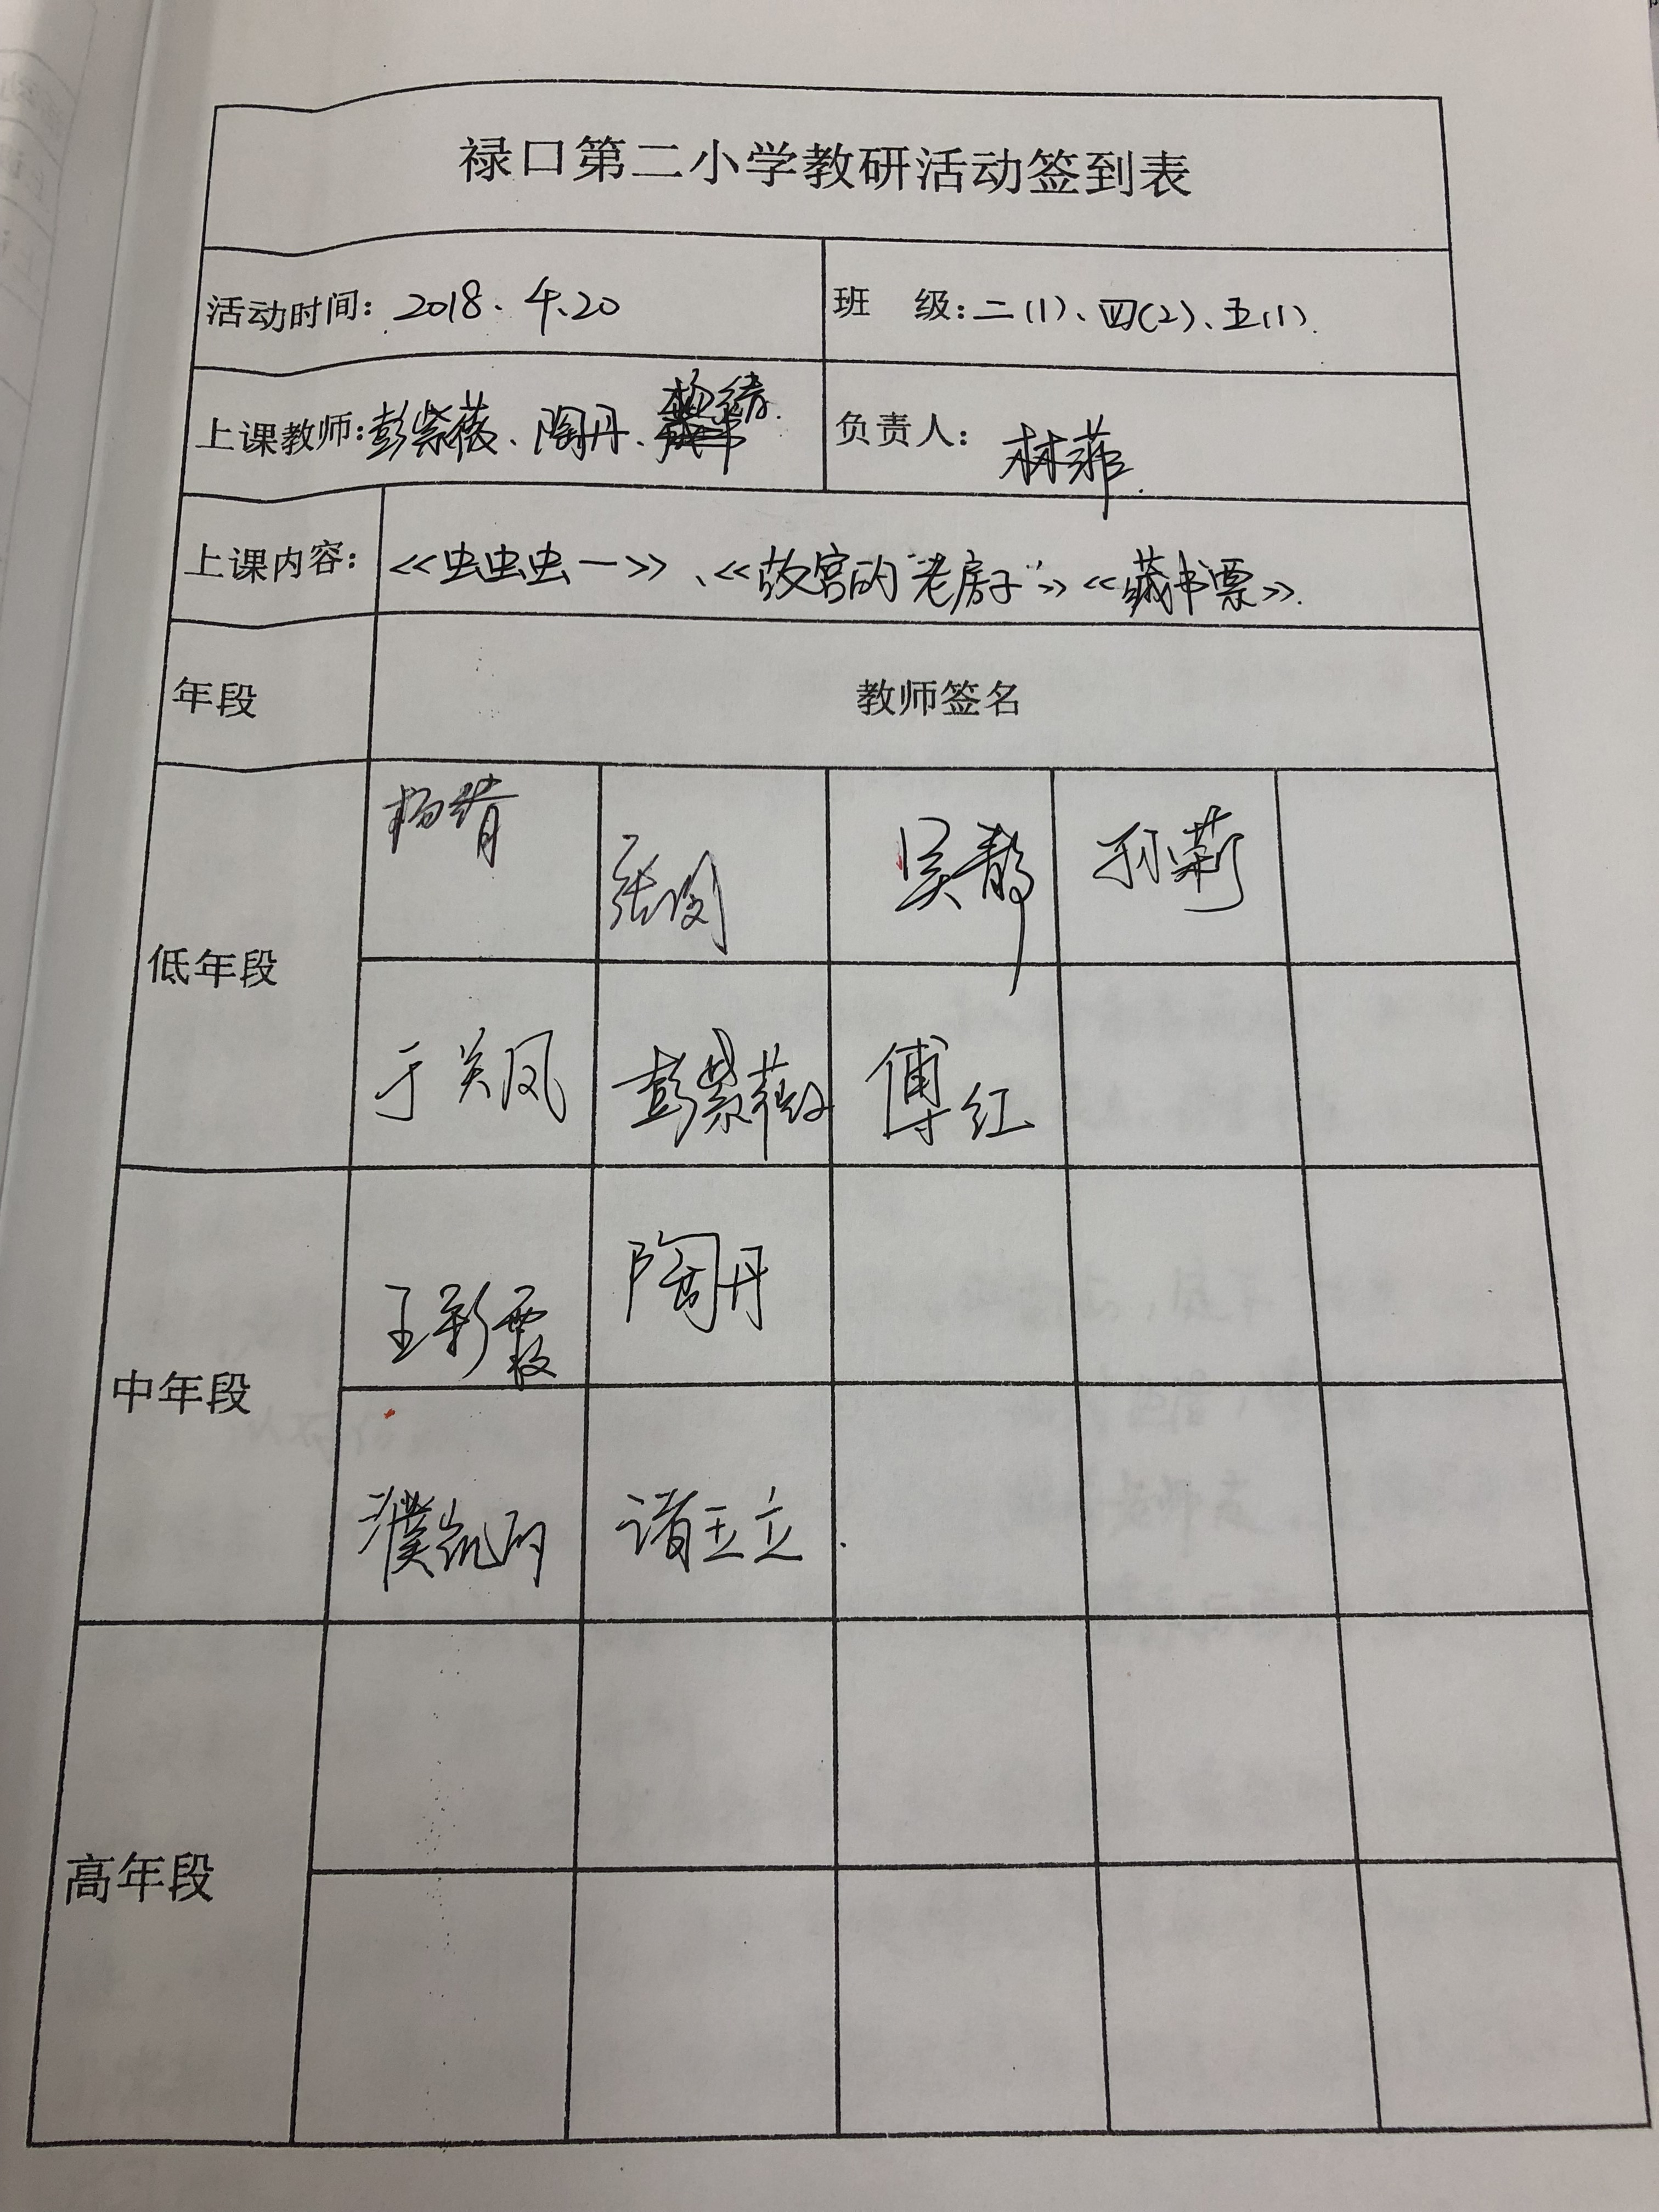 禄口第二小学教研活动签到表
活动时间：2018.4.20 班 级：二(1)、四(2)、五(1).
上课教师：彭紫薇、陶丹、杨绪. 负责人：林菲.
上课内容：<<虫虫虫一>>、<<故宫的"老房子">><<藏书票>>.
年段 教师签名
杨绪 张闵 吴静 孙莉
低年段
于关凤 彭紫薇 傅红
王彩霞 陶丹
中年段
濮凯 诸玉立.
高年段